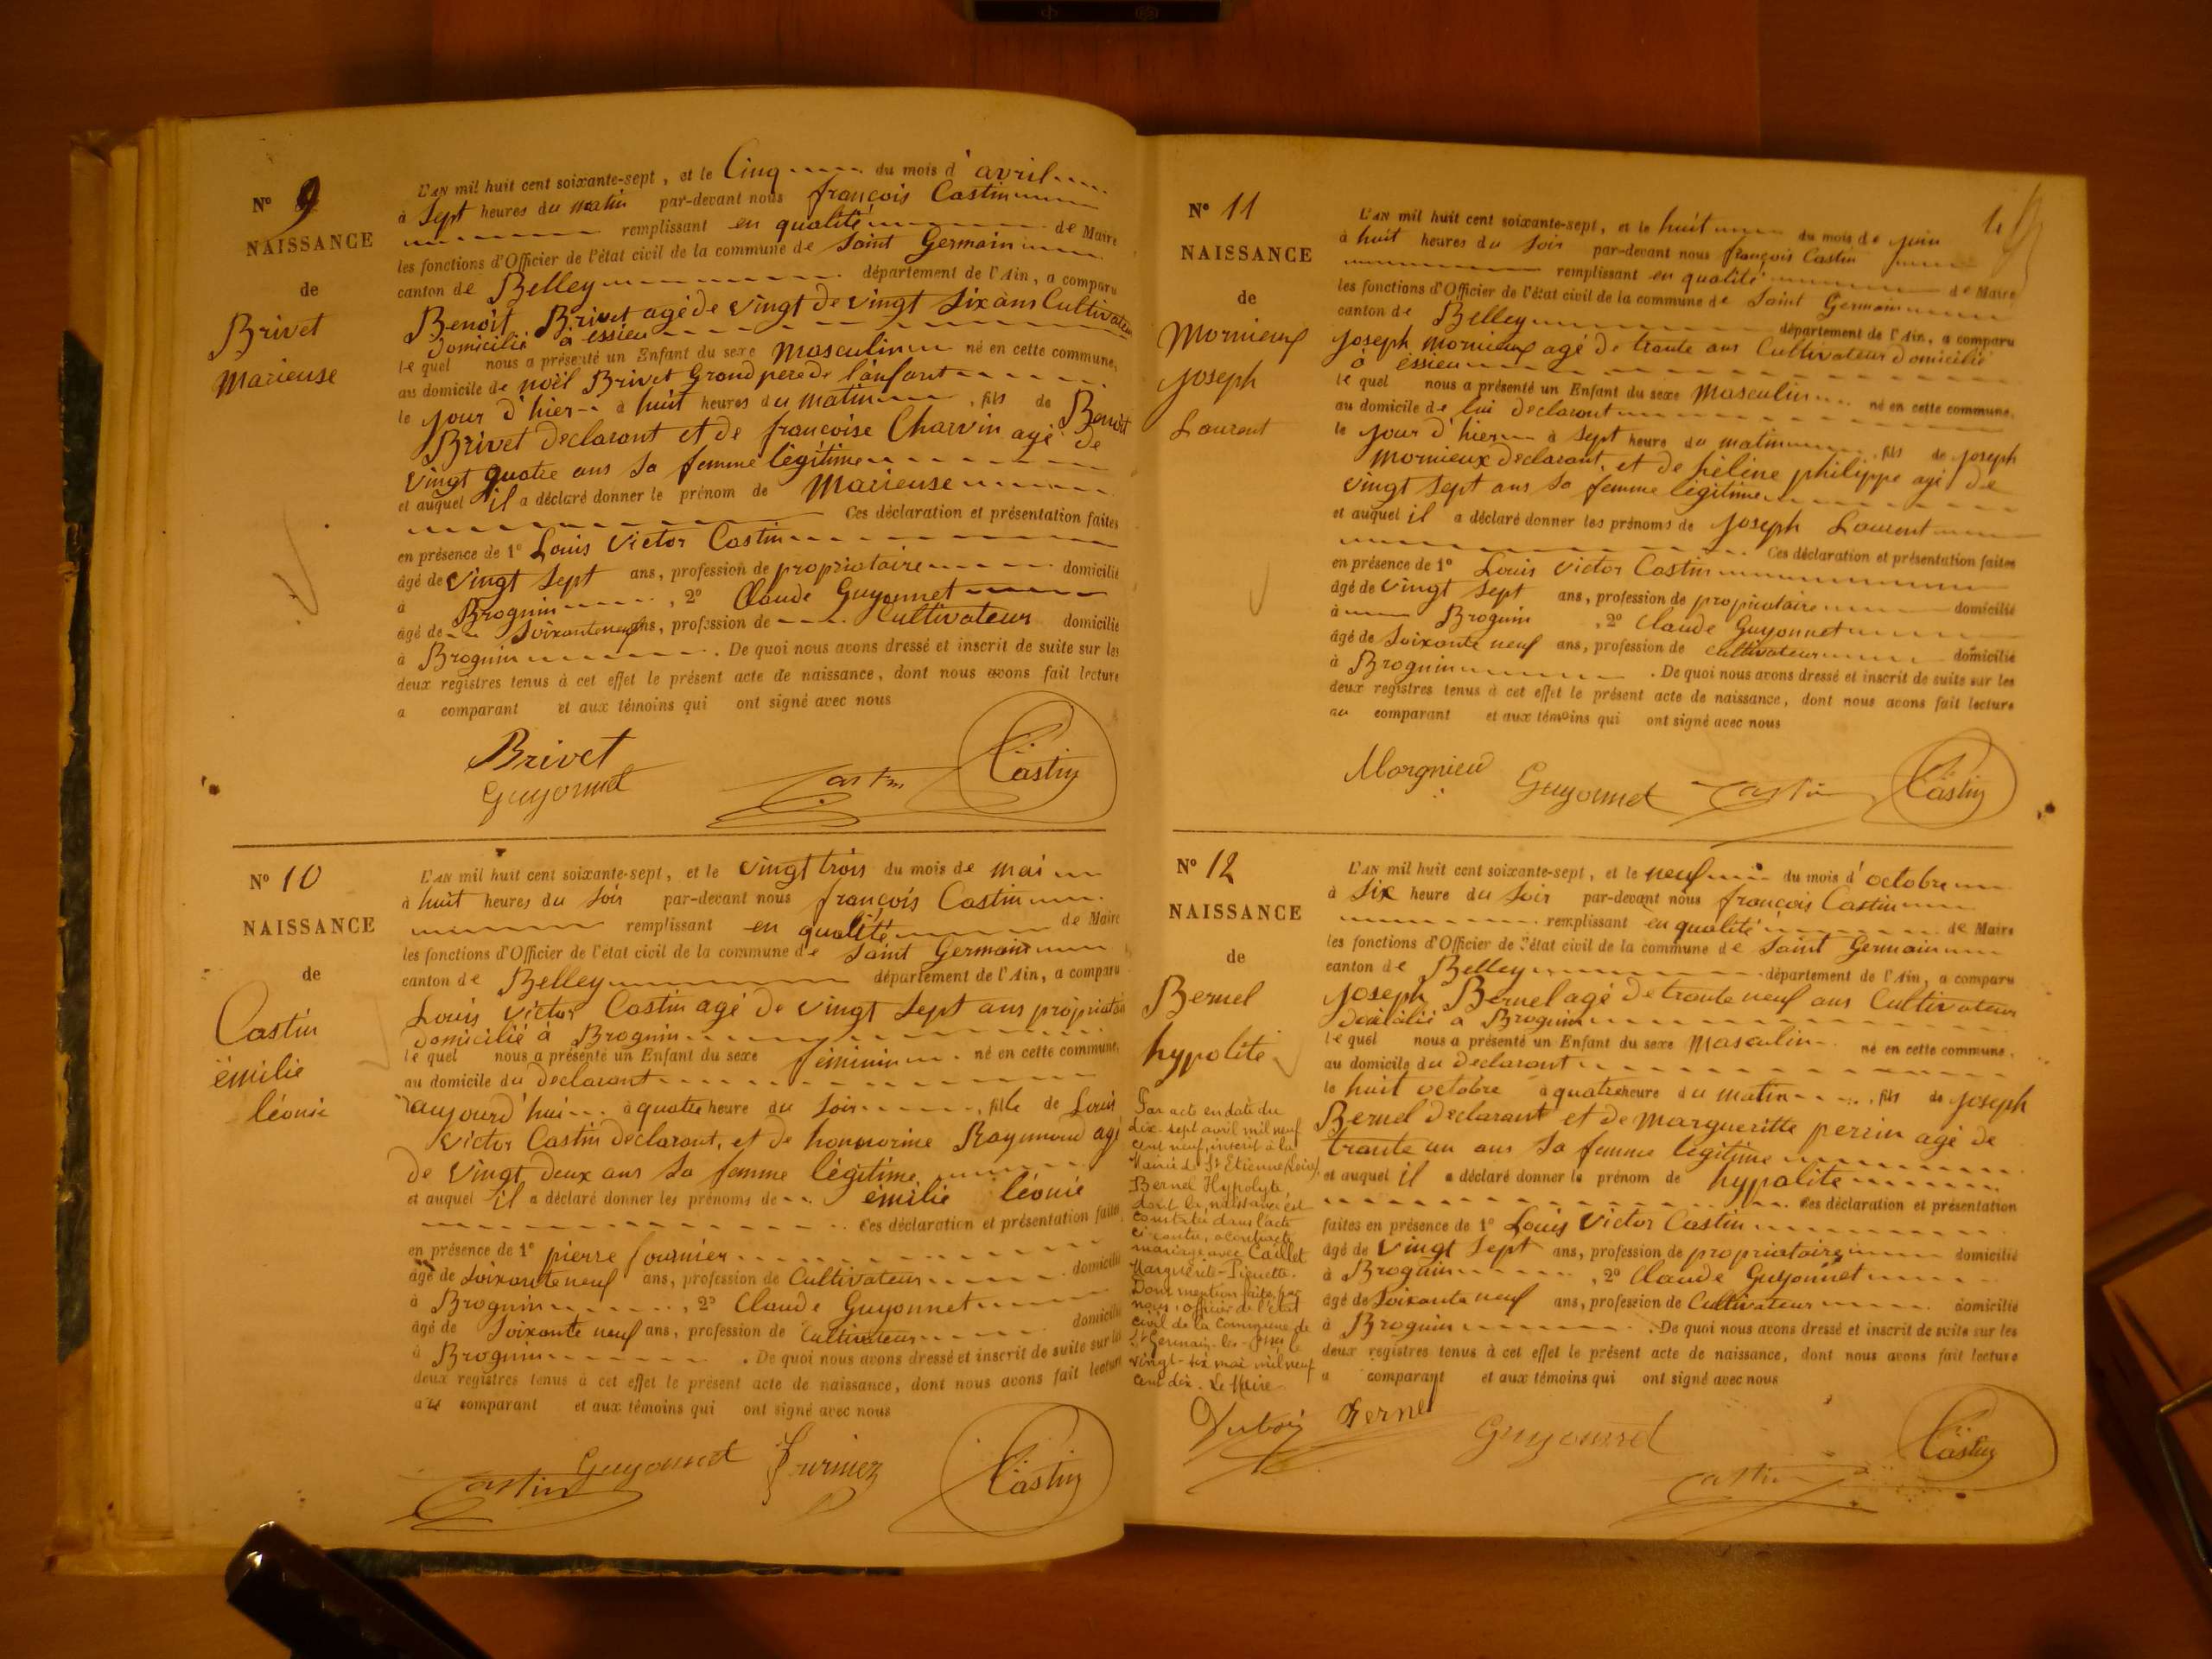 N° 9
NAISSANCE
de
Brivet
Marieuse
L'AN mil huit cent soixante-sept, et le Cinq du mois d'avril
à Sept heures du matin par-devant nous françois Castin
remplissant en qualité de Maire
les fonctions d'Officier de l'état civil de la commune de Saint Germain
canton de Belley département de l'Ain, a comparu
Benoit Brivet agé de vingt de vingt Six ans Cultivateur
domicilié à éssieu
le quel nous a présenté un Enfant du sexe Masculin né en cette commune,
au domicile de noël Brivet Grand pere de l'anfant
le jour d'hier à huit heures du matin, fils de Benoit
Brivet declarant et de françoise Charvin agé de
vingt quatre ans Sa femme légitime
et auquel il a déclaré donner le prénom de Marieuse
Ces déclaration et présentation faites
en présence de 1° Louis Victor Castin
âgé de vingt Sept ans, profession de propriataire domicilié
à Brognin, 2° Claude Guyonnet
âgé de Soixante neuf ans, profession de Cultivateur domicilié
à Brognin. De quoi nous avons dressé et inscrit de suite sur les
deux registres tenus à cet effet le présent acte de naissance, dont nous avons fait lecture
a comparant et aux témoins qui ont signé avec nous
Brivet
Guyonnet Castin Castin
N° 10
NAISSANCE
de
Castin
émilie
léonie
L'AN mil huit cent soixante-sept, et le vingt trois du mois de mai
à huit heures du Soir par-devant nous françois Castin
remplissant en qualité de Maire
les fonctions d'Officier de l'état civil de la commune de Saint Germain
canton de Belley département de l'Ain, a comparu
Louis Victor Castin agé de vingt Sept ans propriataire
domicilié à Brognin
le quel nous a présenté un Enfant du sexe féminin né en cette commune,
au domicile du declarant
aujourd'hui à quatre heure du Soir, fille de Louis
Victor Castin declarant, et de honnorine Raymond agé
de vingt deux ans Sa femme légitime
et auquel il a déclaré donner les prénoms de émilie léonie
Ces déclaration et présentation faites
en présence de 1° pierre fournier
âgé de Soixante neuf ans, profession de Cultivateur domicilié
à Brognin, 2° Claude Guyonnet
âgé de Soixante neuf ans, profession de Cultivateur domicilié
à Brognin. De quoi nous avons dressé et inscrit de suite sur les
deux registres tenus à cet effet le présent acte de naissance, dont nous avons fait lecture
au comparant et aux témoins qui ont signé avec nous
Castin Guyonnet Furnier Castin
N° 11
NAISSANCE
de
Mornieux
joseph
Laurent
L'AN mil huit cent soixante-sept, et le huit du mois de juin
à huit heures du Soir par-devant nous françois Castin
remplissant en qualité de Maire
les fonctions d'Officier de l'état civil de la commune de Saint Germain
canton de Belley département de l'Ain, a comparu
joseph mornieux agé de trante ans Cultivateur domicilié
à éssieu
le quel nous a présenté un Enfant du sexe Masculin né en cette commune,
au domicile de lui declarant
le jour d'hier à Sept heure du matin, fils de joseph
mornieux declarant, et de hélène philippe agé de
vingt Sept ans Sa femme légitime
et auquel il a déclaré donner les prénoms de joseph Laurent
Ces déclaration et présentation faites
en présence de 1° Louis Victor Castin
âgé de vingt Sept ans, profession de propriataire domicilié
à Brognin, 2° Claude Guyonnet
âgé de Soixante neuf ans, profession de Cultivateur domicilié
à Brognin. De quoi nous avons dressé et inscrit de suite sur les
deux registres tenus à cet effet le présent acte de naissance, dont nous avons fait lecture
au comparant et aux témoins qui ont signé avec nous
Morgnieu Guyonnet Castin Castin
N° 12
NAISSANCE
de
Bernel
hypolite
Par acte en date du
dix-sept avril mil neuf
cent neuf, inscrit à la
Mairie de St Etienne (Loire),
Bernel Hypolyte,
dont la naissance est
constatée dans l'acte
ci-contre, a contracté
mariage avec Caillet
Marguerite-Pierrette.
Dont mention faite par
nous, officier de l'état
civil de la Commune de
St Germain-les- le
vingt-six mai mil neuf
cent dix. Le Maire
Dubois
L'AN mil huit cent soixante-sept, et le neuf du mois d'octobre
à Six heure du Soir par-devant nous françois Castin
remplissant en qualité de Maire
les fonctions d'Officier de l'état civil de la commune de Saint Germain
canton de Belley département de l'Ain, a comparu
joseph Bernel agé de trante neuf ans Cultivateur
domicilié a Brognin
le quel nous a présenté un Enfant du sexe Masculin né en cette commune,
au domicile du declarant
le huit octobre à quatre heure du matin, fils de joseph
Bernel declarant et de margueritte perrin agé de
trante un ans Sa femme légitime
et auquel il a déclaré donner le prénom de hypolite
Ces déclaration et présentation
faites en présence de 1° Louis Victor Castin
âgé de vingt Sept ans, profession de propriataire domicilié
à Brognin, 2° Claude Guyonnet
âgé de Soixante neuf ans, profession de Cultivateur domicilié
à Brognin. De quoi nous avons dressé et inscrit de suite sur les
deux registres tenus à cet effet le présent acte de naissance, dont nous avons fait lecture
a comparant et aux témoins qui ont signé avec nous
Bernel Guyonnet Castin Castin